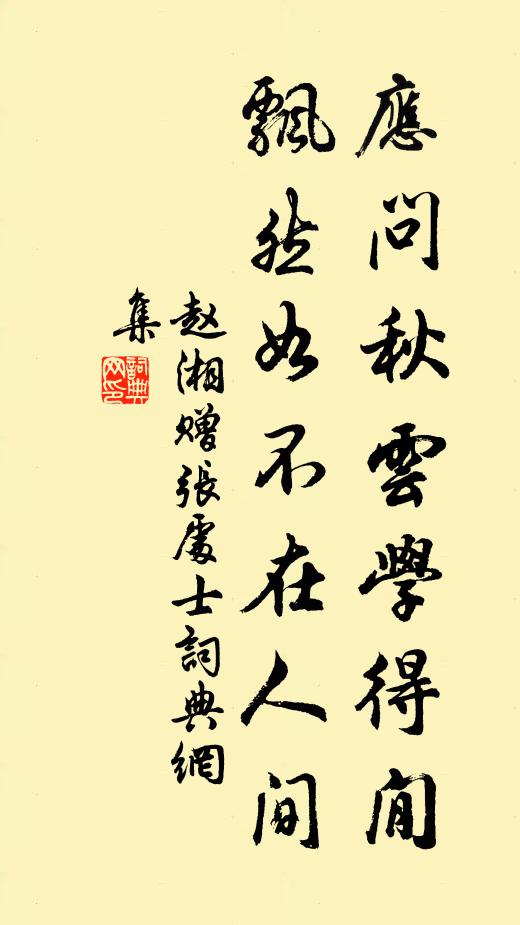 應問秋雲學得閒
飄然如不在人間
赵湘赠張處士詞典網
集
詞典
网印